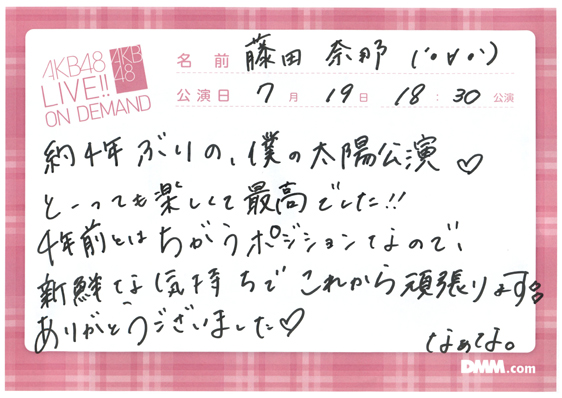 AKB48
LIVE!!
ON DEMAND
AKB
48
名前 藤田 奈那 (*'▽'*)
公演日 7月 19日 18:30 公演
約4年ぶりの、僕の太陽公演♡
とーっても楽しくて最高でした!!
4年前とはちがうポジションなので、
新鮮な気持ちでこれから頑張ります
ありがとうございました♡
なぁな。
DMM.com